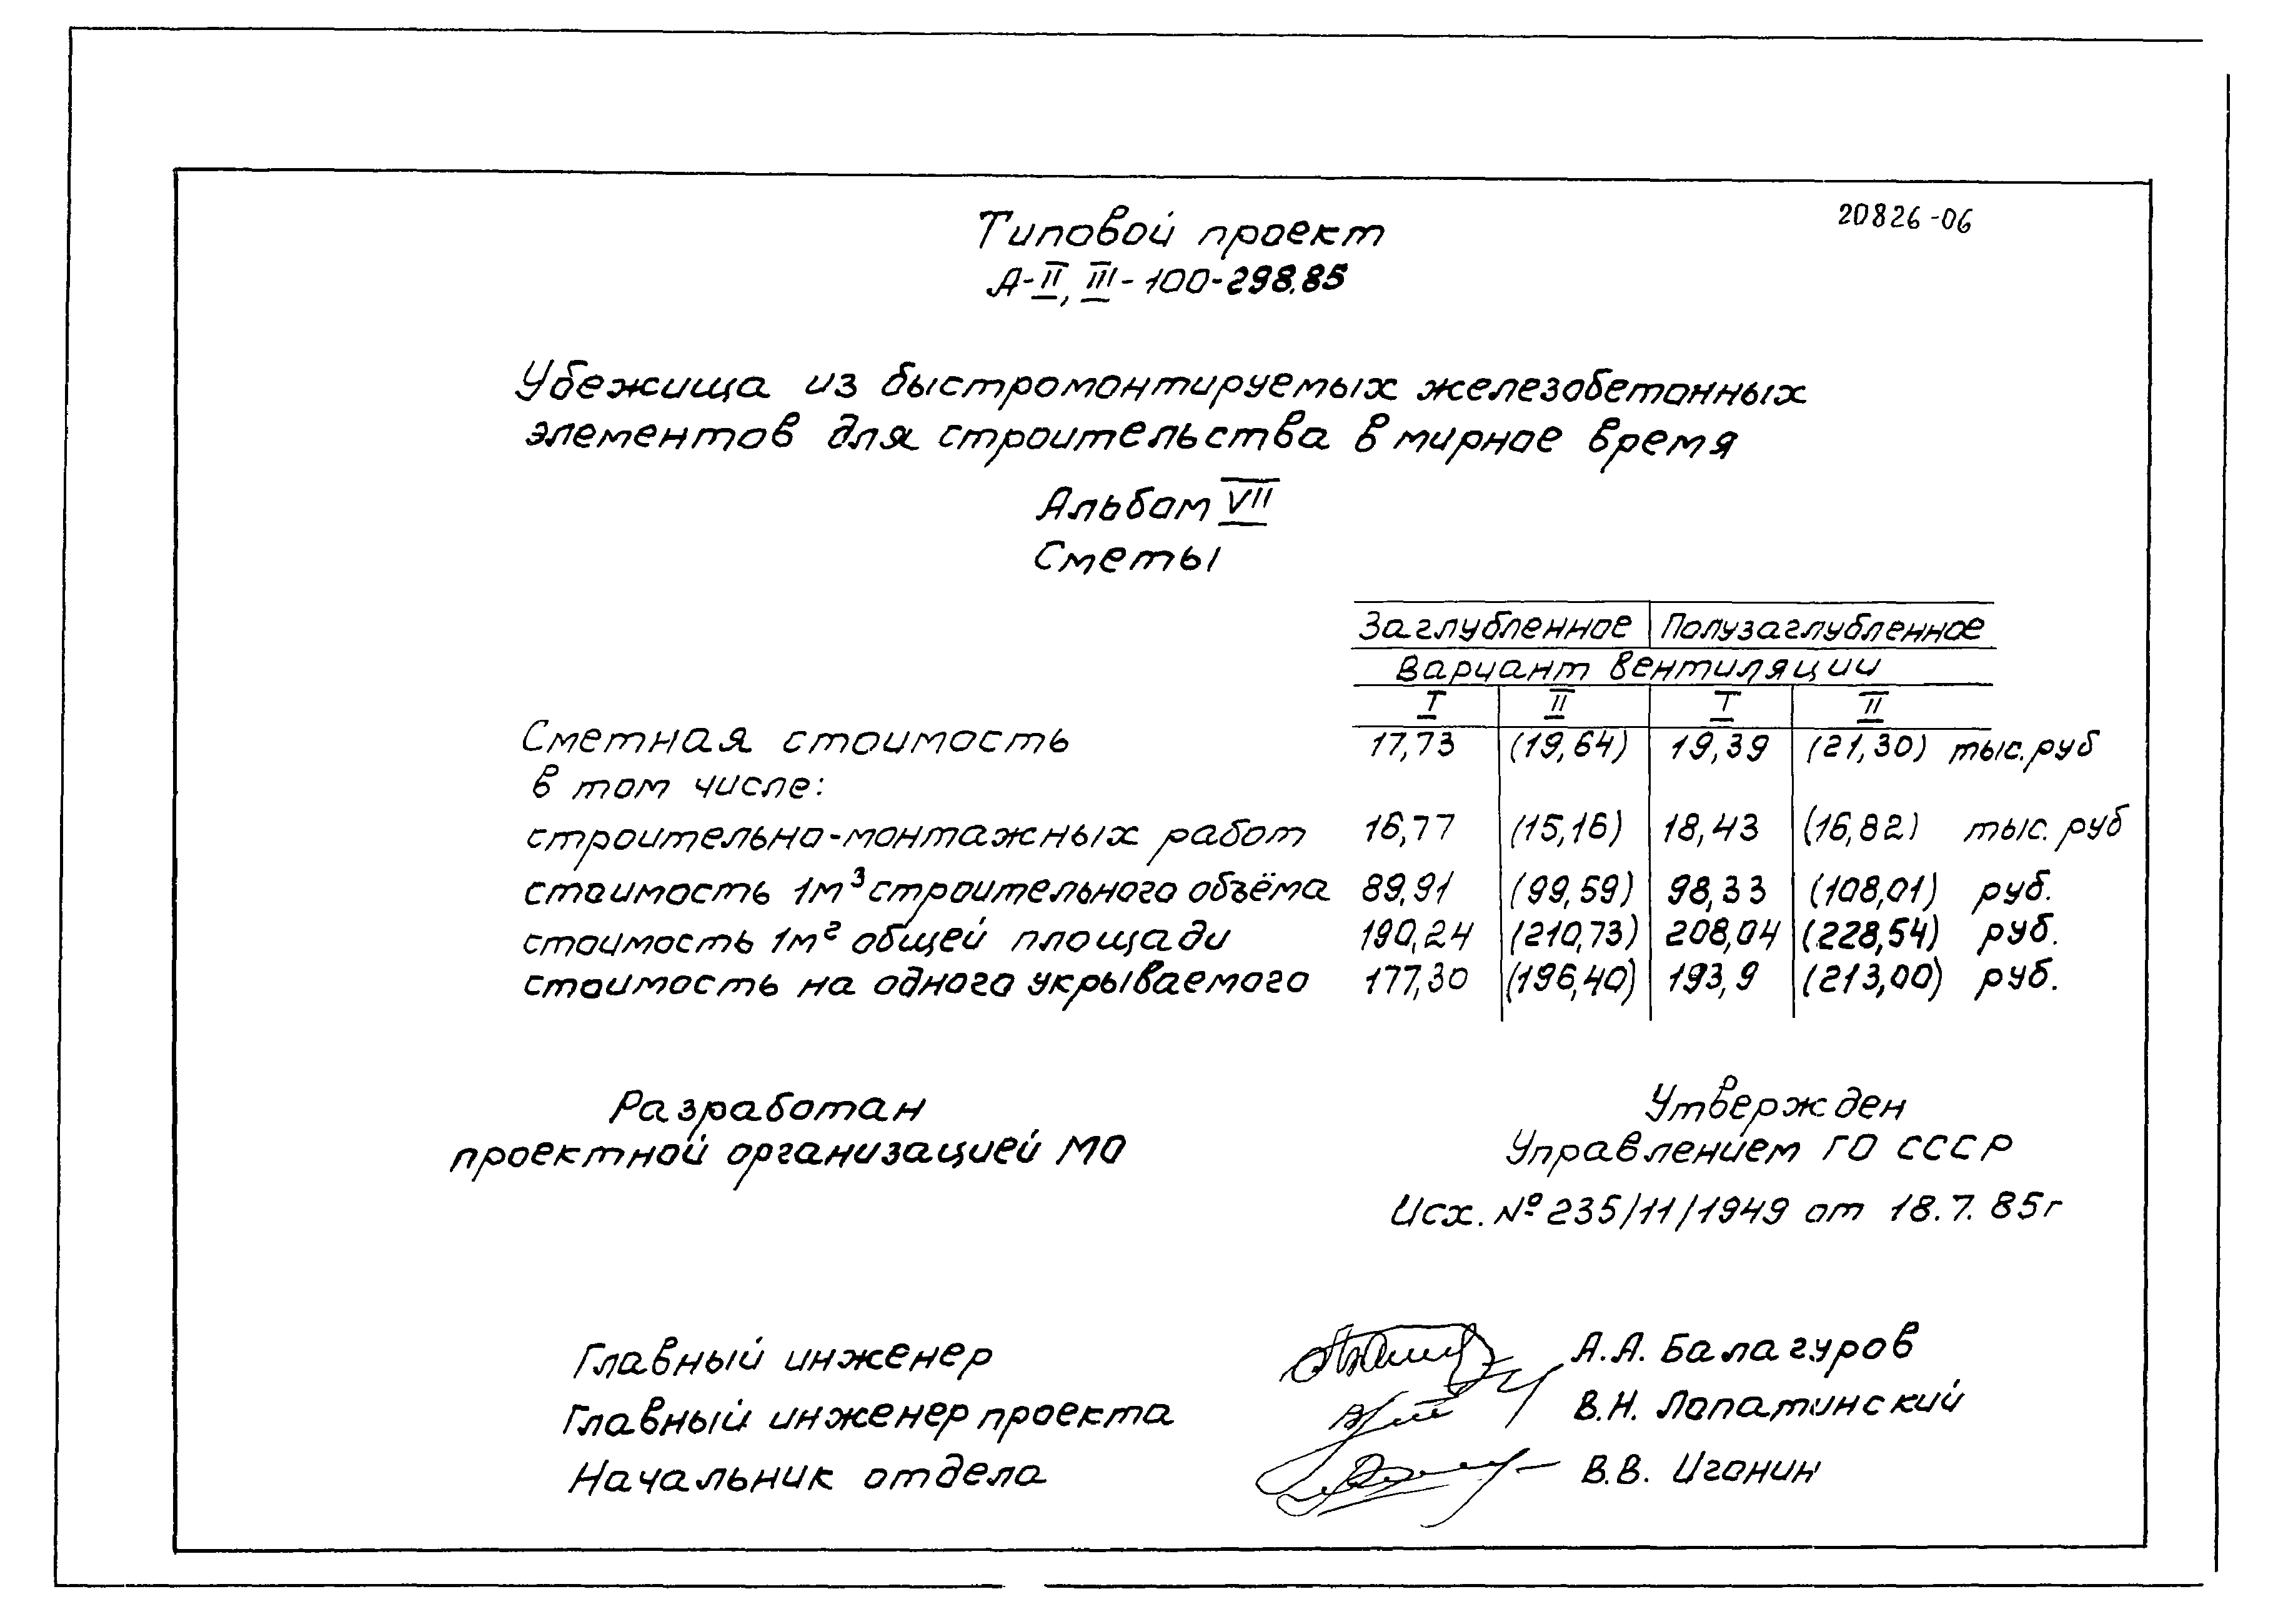 20826-06
Типовой проект
А-II, III-100-298.85
Убежища из быстромонтируемых железобетонных
элементов для строительства в мирное время
Альбом VII
Сметы
Заглубленное Полузаглубленное
Вариант вентиляции
I II I II
Сметная стоимость 17,73 (19,64) 19,39 (21,30) тыс.руб
в том числе:
строительно-монтажных работ 16,77 (15,16) 18,43 (16,82) тыс. руб
стоимость 1м³ строительного объёма 89,91 (99,59) 98,33 (108,01) руб.
стоимость 1м² общей площади 190,24 (210,73) 208,04 (228,54) руб.
стоимость на одного укрываемого 177,30 (196,40) 193,9 (213,00) руб.
Разработан
проектной организацией МО
Утвержден
Управлением ГО СССР
Исх. № 235/11/1949 от 18.7.85г
Главный инженер А.А. Балагуров
Главный инженер проекта В.Н. Лопатинский
Начальник отдела В.В. Игонин